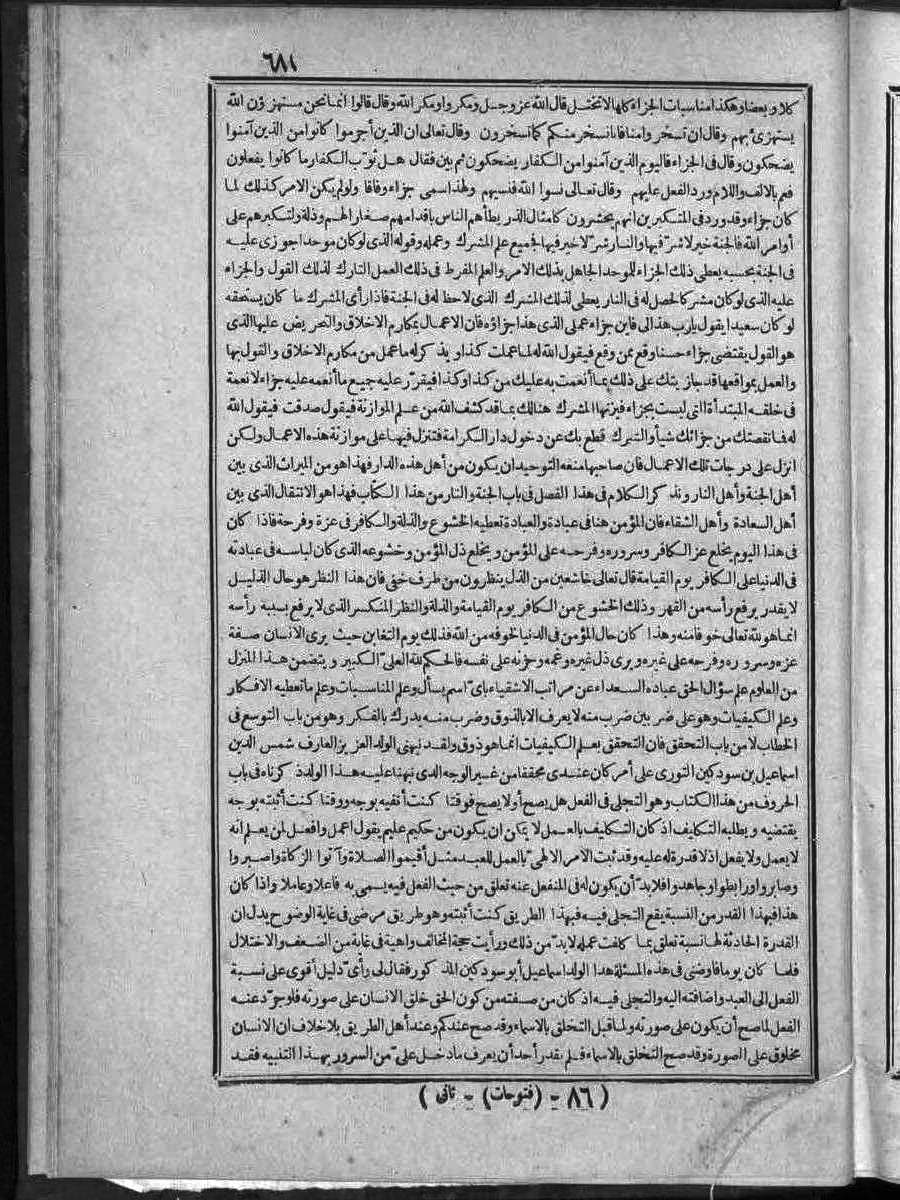 ٦٨١
كلا وبعضا وهكذا مناسبات الجزاء كلها لا تختل قال الله عز وجل ومكروا ومكر الله وقال قالوا انما نحن مستهزؤن الله
يستهزئ بهم وقال ان تسخروا منا فانا نسخر منكم كما تسخرون وقال تعالى ان الذين أجرموا كانوا من الذين آمنوا
يضحكون وقال فى الجزاء فاليوم الذين آمنوا من الكفار يضحكون ثم بين فقال هل ثوّب الكفار ما كانوا يفعلون
فعم بالالف واللام ورد الفعل عليهم وقال تعالى نسوا الله فنسيهم ولهذا سمى جزاء وفاقا ولو لم يكن الامر كذلك لما
كان جزاء وقد ورد فى المتكبرين انهم يحشرون كامثال الذر يطأهم الناس باقدامهم صغارا لهم وذلة ولتكبرهم على
أوامر الله فالجنة خير لا شرّ فيها والنار شرّ لا خير فيها فجميع علم المشرك وعمله وقوله الذى لو كان موحدا جوزى عليه
فى الجنة بحسبه يعطى ذلك الجزاء للموحد الجاهل بذلك الامر والعلم المفرط فى ذلك العمل التارك لذلك القول والجزاء
عليه الذى لو كان مشركا لحصل له فى النار يعطى لذلك المشرك الذى لاحظ له فى الجنة فاذا رأى المشرك ما كان يستحقه
لو كان سعيدا يقول يا رب هذا لى فاين جزاء عملى الذى هذا جزاؤه فان الاعمال بمكارم الاخلاق والتحريض عليها الذى
هو القول يقتضى جزاء حسنا وقع ممن وقع فيقول الله له لما عملت كذا ويذكر له ما عمل من مكارم الاخلاق والقول بها
والعمل بمواقعها قد جازيتك على ذلك بما أنعمت به عليك من كذا وكذا فيقرّر عليه جميع ما أنعمه عليه جزاء لا نعمة
فى خلقه المبتدأة التى ليست بجزاء فيزنها المشرك هنالك بما قد كشف الله من علم الموازنة فيقول صدقت فيقول الله
له فما نقصتك من جزائك شيأ والشرك قطع بك عن دخول دار الكرامة فتنزل فيها على موازنة هذه الاعمال ولكن
انزل على درجات تلك الاعمال فان صاحبها منعه التوحيد ان يكون من أهل هذه الدار فهذا هو من الميراث الذى بين
أهل الجنة وأهل النار ونذكر الكلام فى هذا الفصل فى باب الجنة والنار من هذا الكتاب فهذا هو الانتقال الذى بين
أهل السعادة وأهل الشقاء فان المؤمن هنا فى عبادة والعبادة تعطيه الخشوع والذلة والكافر فى عزة وفرحة فاذا كان
فى هذا اليوم يخلع عز الكافر وسروره وفرحه على المؤمن ويخلع ذل المؤمن وخشوعه الذى كان لباسه فى عبادته
فى الدنيا على الكافر يوم القيامة قال تعالى خاشعين من الذل ينظرون من طرف خفى فان هذا النظر هو حال الذليل
لا يقدر يرفع رأسه من القهر وذلك الخشوع من الكافر يوم القيامة والذلة والنظر المنكسر الذى لا يرفع بسببه رأسه
انما هو لله تعالى خوفا منه وهذا كان حال المؤمن فى الدنيا لخوفه من الله فذلك يوم التغابن حيث يرى الانسان صفة
عزه وسروره وفرحه على غيره ويرى ذل غيره وغمه وحزنه على نفسه فالحكم لله العلىّ الكبير ويتضمن هذا المنزل
من العلوم علم سؤال الحق عباده السعداء عن مراتب الاشقياء باىّ اسم يسأل وعلم المناسبات وعلم ما تعطيه الافكار
وعلم الكيفيات وهو على ضربين ضرب منه لا يعرف الا بالذوق وضرب منه يدرك بالفكر وهو من باب التوسع فى
الخطاب لا من باب التحقق فان التحقق بعلم الكيفيات انما هو ذوق ولقد نبهنى الولد العزيز العارف شمس الدين
اسماعيل بن سودكين التورى على أمر كان عندى محققا من غير الوجه الذى نبهنا عليه هذا الولد ذكرناه فى باب
الحروف من هذا الكتاب وهو التجلى فى الفعل هل يصح أو لا يصح فوقتا كنت أنفيه بوجه ووقتا كنت أثبته بوجه
يقتضيه ويطلبه التكليف اذ كان التكليف بالعمل لا يمكن ان يكون من حكيم عليم يقول اعمل وافعل لمن يعلم انه
لا يعمل ولا يفعل اذ لا قدرة له عليه وقد ثبت الامر الالهىّ بالعمل للعبد مثل أقيموا الصلاة وآتوا الزكاة واصبروا
وصابروا ورابطوا وجاهدوا فلا بدّ أن يكون له فى المنفعل عنه تعلق من حيث الفعل فيه يسمى به فاعلا وعاملا واذا كان
هذا فبهذا القدر من النسبة يقع التجلى فيه فبهذا الطريق كنت أثبته وهو طريق مرضى فى غاية الوضوح يدل ان
القدرة الحادثة لها نسبة تعلق بما كلفت عمله لا بدّ من ذلك ورأيت حجة المخالف واهية فى غاية من الضعف والاختلال
فلما كان يوما فاوضنى فى هذه المسئلة هذا الولد اسماعيل أبو سودكين المذكور فقال لى وأىّ دليل أقوى على نسبة
الفعل الى العبد واضافته اليه والتجلى فيه اذ كان من صفته من كون الحق خلق الانسان على صورته فلو جرّد عنه
الفعل لما صح أن يكون على صورته ولما قبل التخلق بالاسماء وقد صح عندكم وعند أهل الطريق بلا خلاف ان الانسان
مخلوق على الصورة وقد صح التخلق بالاسماء فلم يقدر أحد أن يعرف ما دخل علىّ من السرور بهذا التنبيه فقد
( ٨٦ - (فتوحات) - ثانى )